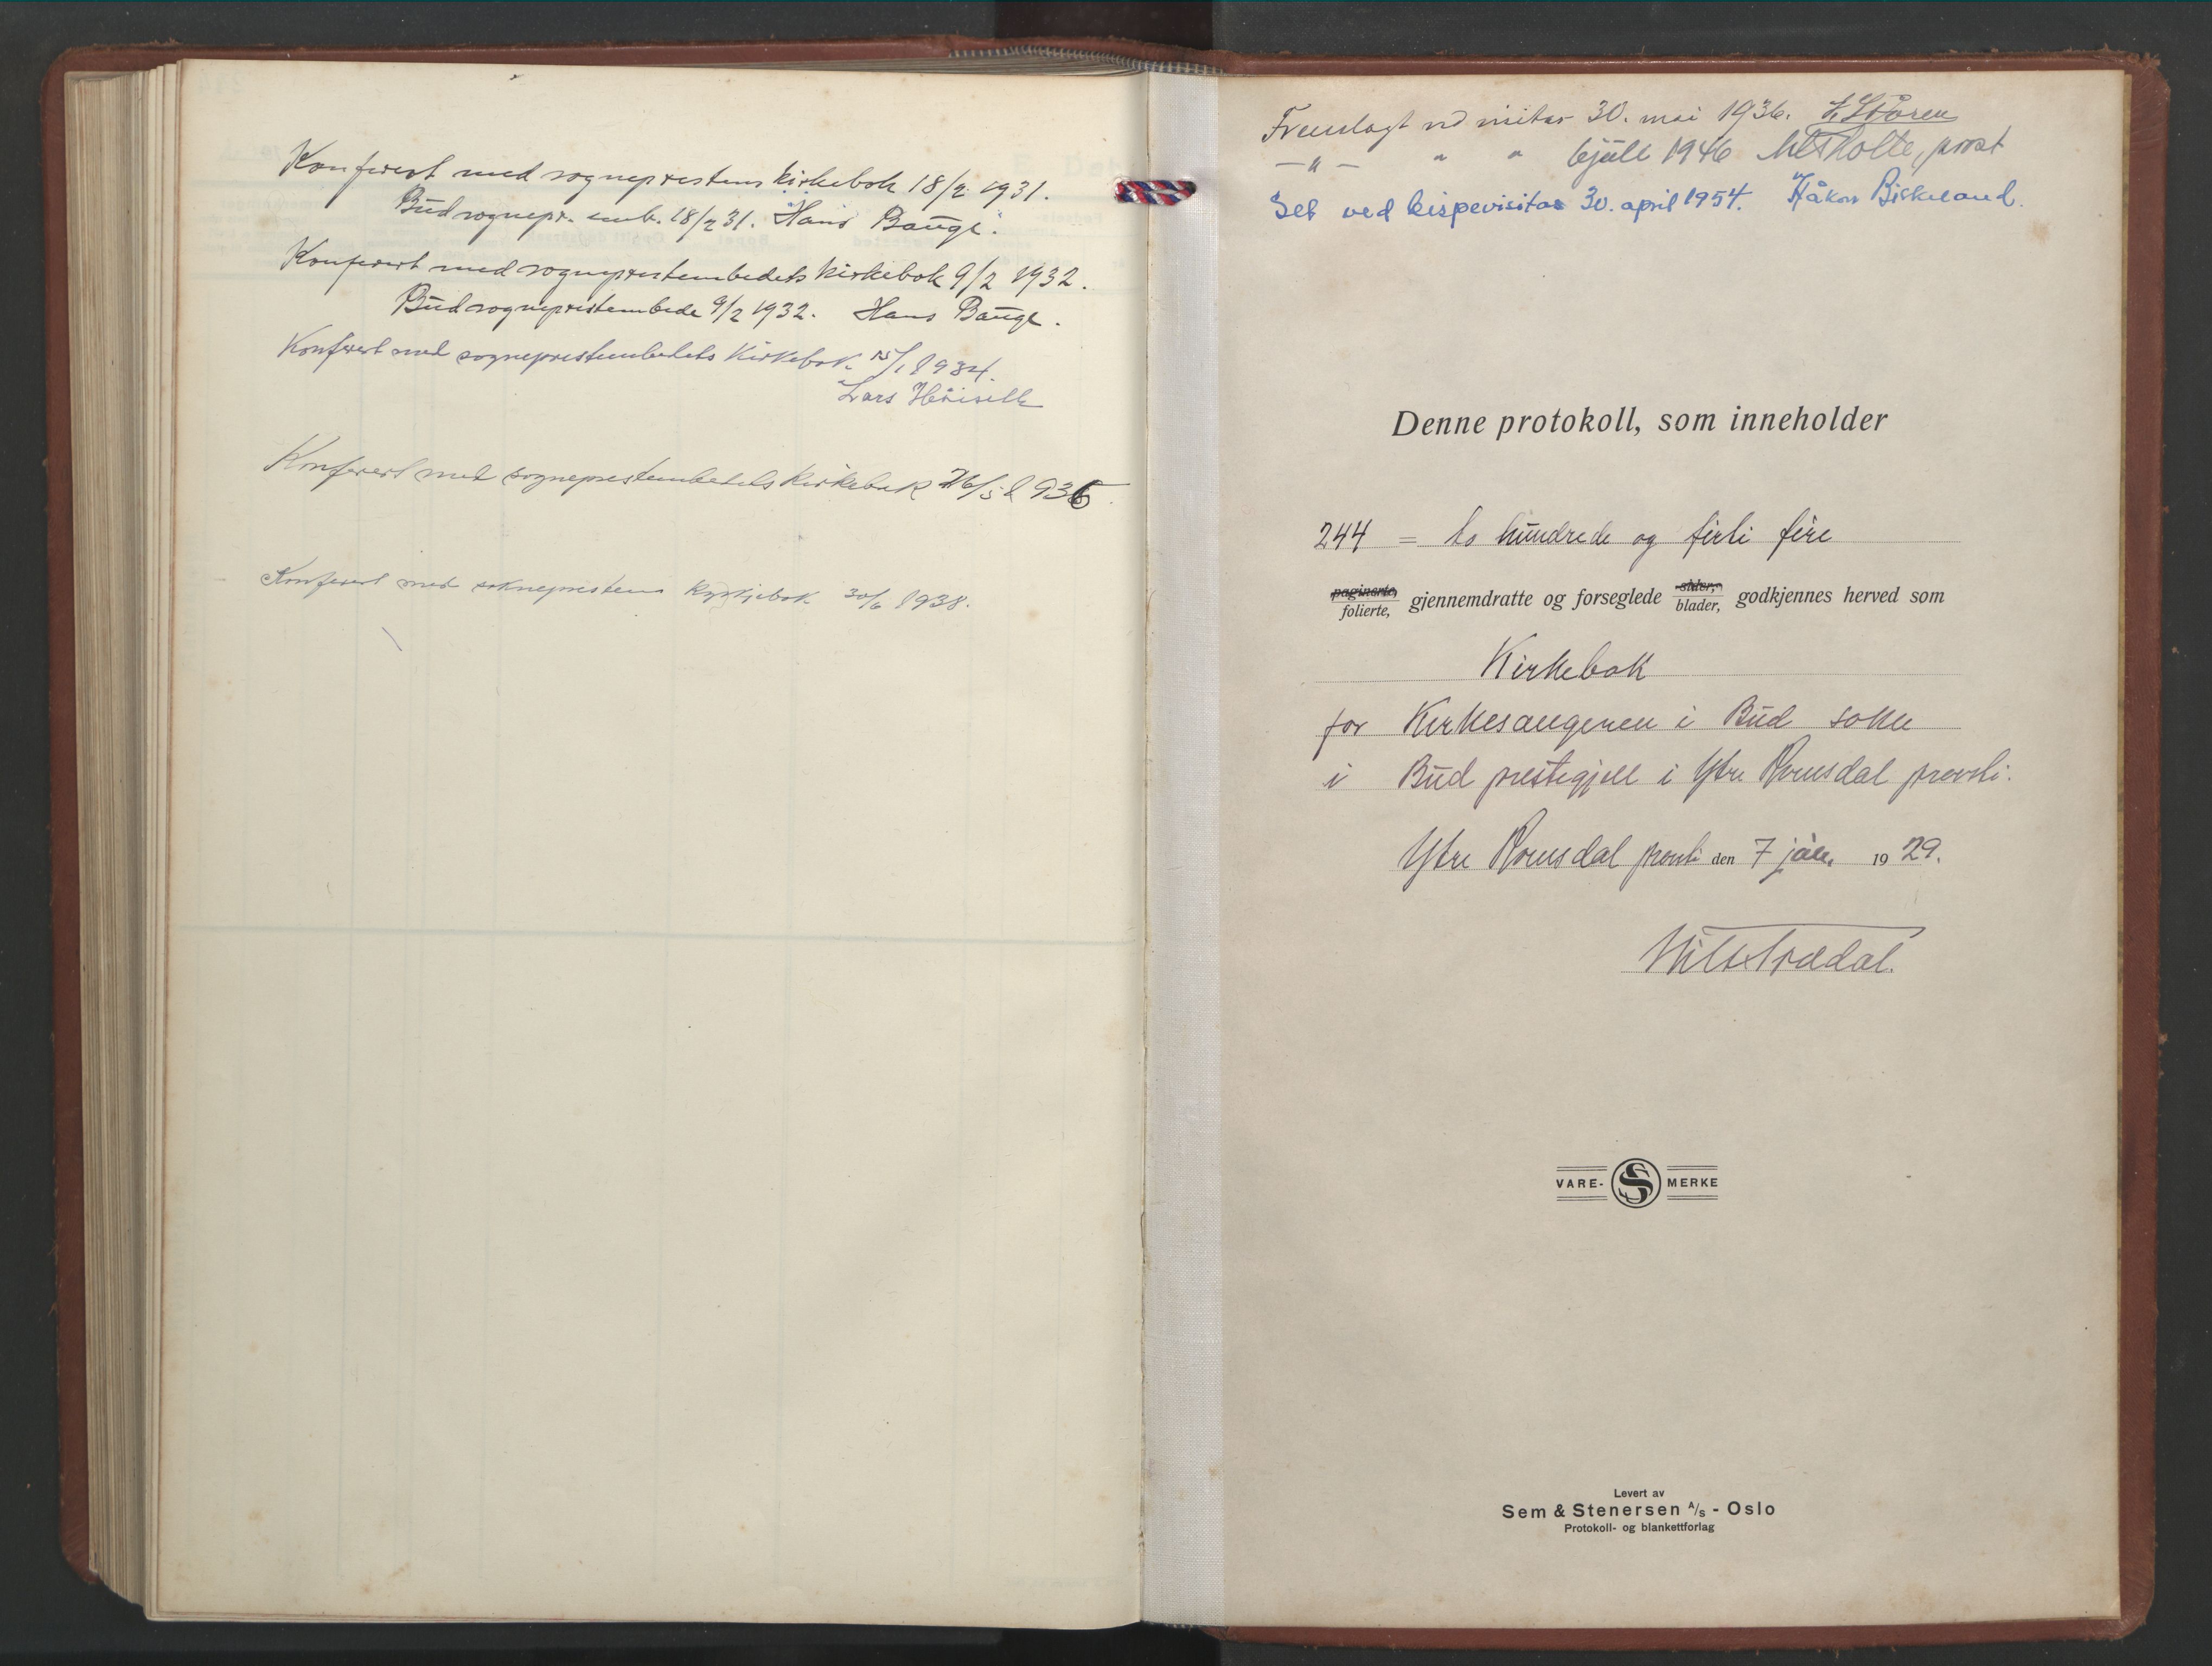 Konferert med sogneprestens kirkebok 18/2 1931.
Bud sognepr. emb. 18/2 31. Hans Bauge.
Konferert med sogneprestembedets kirkebok 9/2 1932.
Bud sogneprestembede 9/2 1932. Hans Bauge.
Konferert med sogneprestembedets Kirkebok 15/1 1934.
Lars
Konferert med sogneprestembedets Kirkebok 26/5 1936.
Konferert med sokneprestens Kyrkjebok 30/6 1938.
Fremlagt ved visitas 30. mai 1936. H. Støren
— " — " " 6 juli 1946 Holte, prost
Set ved bispevisitas 30. april 1954. Håkon Birkeland.
Denne protokoll, som inneholder
244 = to hundrede og firti fire
paginerte, folierte, gjennemdratte og forseglede sider, blader, godkjennes herved som
Kirkebok
for Kirkesangeren i Bud sokn
i Bud prestegjell i Ytre Romsdal prosti.
Ytre Romsdal prosti den 7 jan. 1929.
VARE- S MERKE
Levert av
Sem & Stenersen A/S - Oslo
Protokoll- og blankettforlag